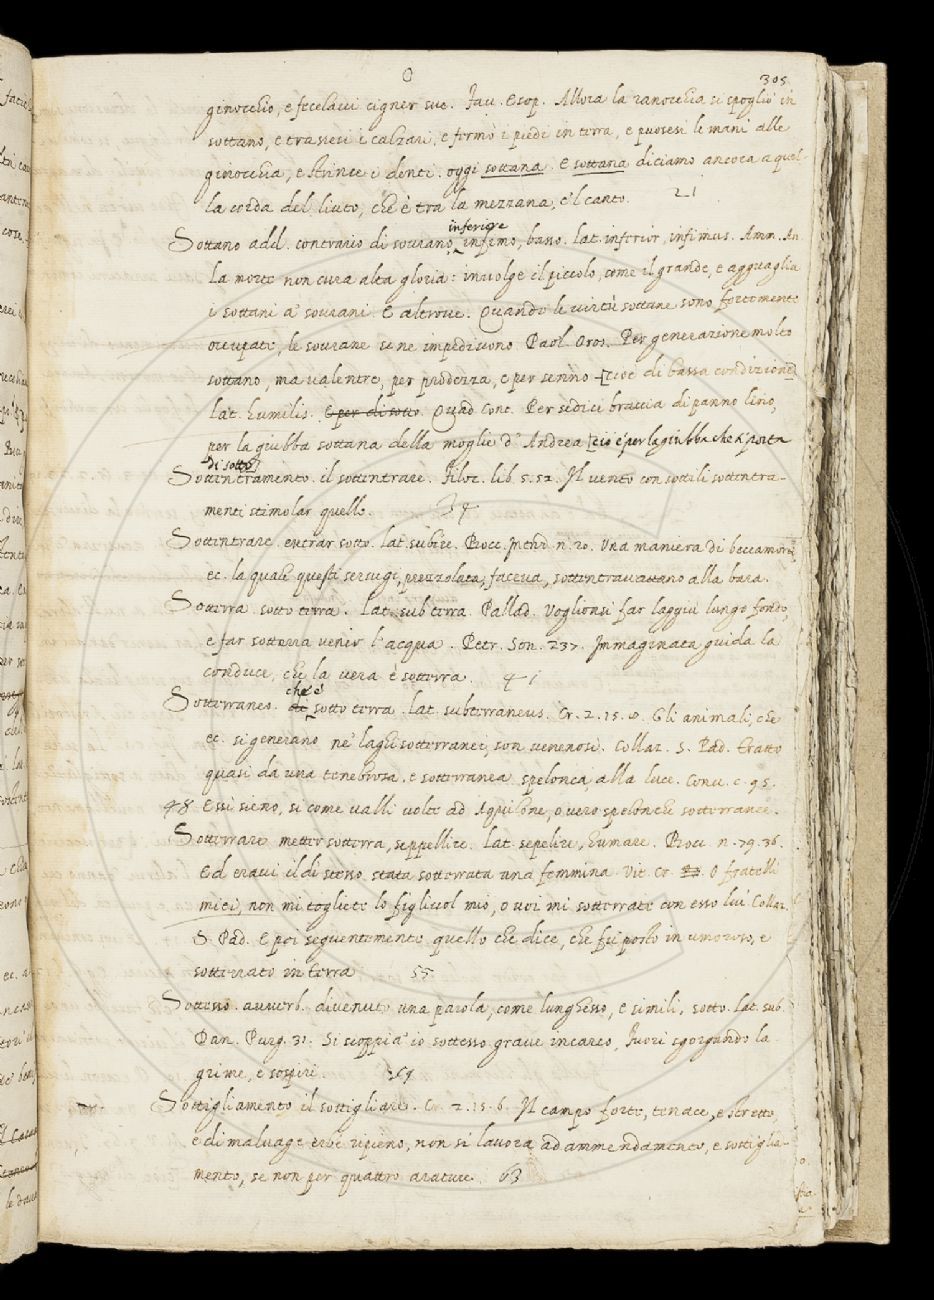 O
305
ginocchio, e fecelavi cigner sue. Fav. Esop. Allora la ranocchia si spogliò in
sottano, e trassesi i calzari, e fermò i piedi in terra, e puosesi le mani alle
ginocchia, e strinse i denti. oggi sottana. E sottana diciamo ancora a quel-
la corda del liuto, che è tra la mezzana, e'l canto. 21
inferiore
Sottano add. contrario di sovrano, infimo, basso. Lat. inferior, infimus. Amm. An.
La morte non cura alta gloria: involge il piccolo, come il grande, e agguaglia
i sottani a' sovrani. E altrove. Quando le virtù sottane sono fortemente
occupate, le sovrane se ne impediscono. Paol. Oros. Per generazione molto
sottano, ma valentre, per prodezza, e per senno [cioè di bassa condizione]
lat. humilis. E per di sotto. Quad. Cont. Per sedici braccia di panno lino,
per la giubba sottana della moglie d'Andrea [cio è per la giubba che si porta
di sotto]
Sottintramento. il sottintrare. Filoc. lib. 5. 52. Il vento con sottili sottintra-
menti stimolar quello. 34
Sottintrare. entrar sotto. lat. subire. Bocc. Introd. n. 20. Una maniera di beccamorti
ec. la quale questi servigi, prezzolata, faceva, sottentravano alla bara.
Sotterra. sotto terra. Lat. sub terra. Pallad. Voglionsi far laggiù lungo fondo,
e far sotterra venir l'acqua. Petr. Son. 237. Immaginata guida la
conduce, che la vera è sotterra. 41
che è
Sotterraneo. di sotto terra. lat. subterraneus. Cr. 2. 15. 8. Gli animali, che
ec. si generano ne' laghi sotterranei, son venenosi. Collaz. S. Pad. tratto
quasi da una tenebrosa, e sotterranea spelonca, alla luce. Conv. c. 95.
48 Essi sieno, si come valli volte ad Aquilone, overo spelonche sotterranee.
Sotterrare metter sotterra, seppellire. Lat. sepelire, humare. Bocc. n. 79. 36.
Ed eravi il dì stesso, stata sotterrata una femmina. Vit. Cr. O fratelli
miei, non mi togliete lo figliuol mio, o voi mi sotterrate con esso lui. Collaz.
S. Pad. E poi seguentemente quello che dice, che fu posto in umoroso, e
sotterrato in terra 55
Sottesso. avverb. divenuto una parola, come lunghesso, e simili, sotto. Lat. sub.
Dan. Purg. 31. Si scoppia' io sottesso grave incarco, Fuori sgorgando la-
grime, e sospiri. 59
Sottigliamento il sottigliare. Cr. 2. 15. 6. Il campo forte, tenace, e stretto,
e di malvage erbe ripieno, non si lavora ad ammendamento, e sottiglia-
mento, se non per quattro arature. 63